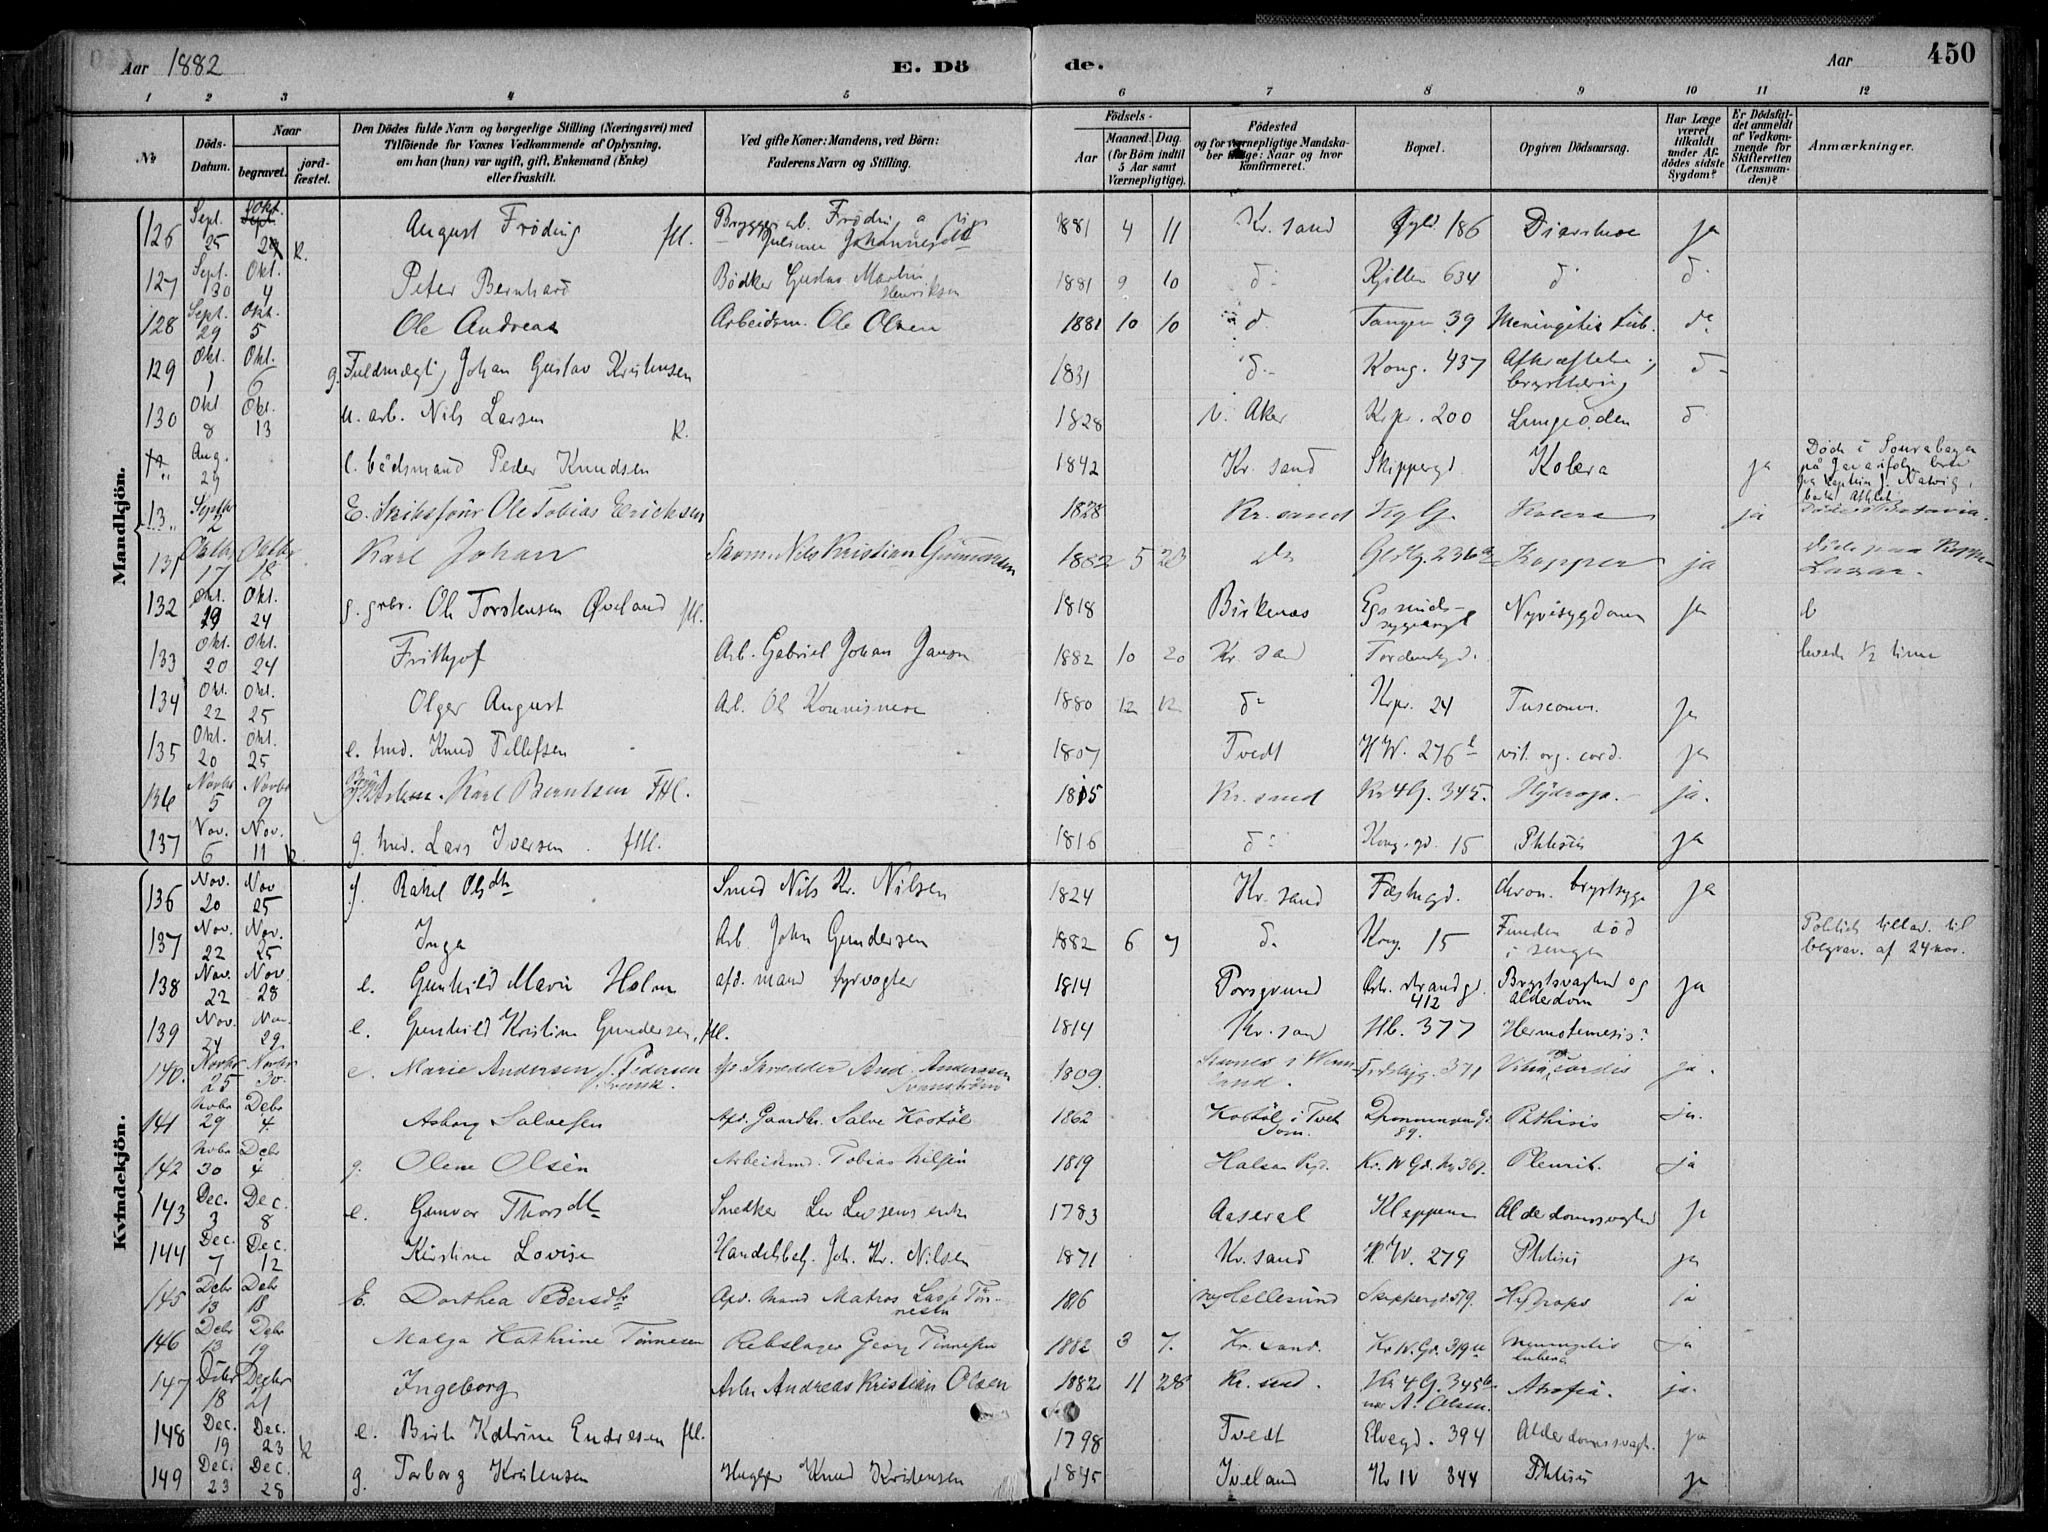 Aar 1882
E. Dö
de.
Aar
450
1 2 3 4 5 6 7 8 9 10 11 12
No
Döds-Datum.
Naar
begravet.
jord-fæstet.
Den Dödes fulde Navn og borgerlige Stilling (Næringsvei) med
Tilföiende for Voxnes Vedkommende af Oplysning,
om han (hun) var ugift, gift, Enkemand (Enke)
eller fraskilt.
Ved gifte Koner: Mandens, ved Börn:
Faderens Navn og Stilling.
Födsels-
Aar
Maaned. Dag.
(for Börn indtil
5 Aar samt
Værnepligtige).
Födested
og for værnepligtige Mandska-
ber tillige: Naar og hvor
konfirmeret.
Bopæl.
Opgiven Dödsaarsag.
Har Læge
været
tilkaldt
under Af-
dödes sidste
Sygdom?
Er Dödsfal-
det anmeldt
af Vedkom-
mende for
Skifteretten
(Lensman-
den)?
Anmærkninger.
Mandkjön.
126 Sept. 25 Okt. k. August Frøding fll. Johannesdtr 1881 4 11 Kr. sand 186 ja
127 Sept. 30 Okt. 4 Peter Bernhard Bødker Gustav Martin Henriksen 1881 9 10 d° Kjillen 634 d° d°
128 Sept. 29 Okt. 5 Ole Andreas Arbeidsm. Ole Olsen 1881 10 10 d° Tangen 39 Meningitis tub. d°
129 Okt. 1 Okt. 6 g. Fuldmægtig Johan Gustav Kristensen 1831 d° Kong. 437 Afkræftelse brysttæring d°
130 Okt. 8 Okt. 13 u. arb. Nils Larsen k. 1828 V. Aker Krpr. 200 d°
Aug. 29 bådsmand Peder Knudsen 1842 Kr. sand Skippergd. Kolera ja Døde i Sourabaya på Java
13 Septbr 2 E. Ole Tobias Ericksen 1828 Kr. sand Kolera ja Døde i Batavia.
131 Oktbr 17 Oktbr 18 Karl Johan Nils Kristian Gunnarsen 1882 5 23 do Kopper ja Døde paa
132 Okt. 19 Okt. 24 g. Ole Torstensen Øveland fll. 1818 Birkenæs Egs Nyresygdom ja
133 Okt. 20 Okt. 24 Frithjof Arb. Gabriel Johan 1882 10 20 Kr. sand levede ½ time
134 Okt. 22 Okt. 25 Olger August Arb. Ole 1880 12 12 d° Krpr. 24 ja
135 Okt. 20 Okt. 25 e. Knud Tellefsen 1807 Tvedt H W. 276 vit. org. cord. ja
136 Novbr 5 Novbr 9 Karl Berntsen FHl. 1815 Kr. sand Kr 4 G. 345. Hydrops. ja.
137 Nov. 6 Nov. 11 k. g. Lars Iversen fll. 1816 d° Kong. gd. 15 Phtisis ja
Kvindekjön.
136 Nov. 20 Nov 25 g. Rakel Olsdtr Smed Nils Kr. Nilsen 1824 Kr. sand Fæstngd. chron. brystsyge ja
137 Nov. 22 Nov. 25 Inga Arb. John Gundersen 1882 6 7 d° Kong. 15 Funden død i sengen Politiets tillad. til begrav. af 24 nov.
138 Nov. 22 Nov. 28 e. Gunhild Marie Holm afd. mand fyrvogter 1814 Porsgrund Østr. strandg. 412 Brystsvaghed og alderdom ja
139 Nov. 24 Nov. 29 e. Gunhild Kristine Gundersen fll. 1814 Kr. sand Hb. 377 Hermotemesis?
140. Novbr 25 Novbr 30 e. Marie Andersen f. Pedersen svensk. Skrædder And. Anderssen Svanström 1809. 371 Vitium cordis ja.
141 Nobr 29 Debr 4. Asborg Salvesen Afd. Gaardbr. Salve Kostøl 1862 Kostøl i Tvet Sogn. Dronningensgd. 89. Phthisis ja.
142 Nobr 30 Debr 4 g. Olene Olsen Arbeidsmd. Tobias Nilsen 1819 Halsaa Pgd. Kr. IV Gd. Nr 367. Pleurit. ja
143 Dec. 3 Dec. 8 e. Gunvor Thorsdtr Snedker 1783 Aaseral Kleppene Alderdomssvaghed ja
144 Dec. 7 Dec. 12 Kirstine Lovise Handelsbetj. Joh. Kr. Nilsen 1871 Kr. sand H. W. 279 Phtisis ja
145 Debr 13 Debr 18 E. Dorthea Pedersdtr Afd. Mand Matros Tönnesen 1816 ny Hellesund Skippergd. 379. Hydrops ja
146 Debr 13 Debr 19 Malga Kathrine Tönnesen Rebslager Georg Tönnesen 1882 3 7. Kr. sand. Kr IV. Gd. 319 Meningitis tuberc. ja
147 Decbr 18 Decbr 21 Ingeborg Arbr Andreas Kristian Olsen 1882 11 28 Kr. sand. Kr 4 G. 345 A. Olsen. Atrofia. ja.
148 Dec. 19 Dec. 23 k e. Birte Katrine Endresen fll. 1798 Tvedt Elvegd. 394 Alderdomssvagh. ja
149 Dec. 23 Dec. 28 g. Torborg Kristensen Knud Kristensen 1845 Iveland Kr IV 344 Phtisis ja